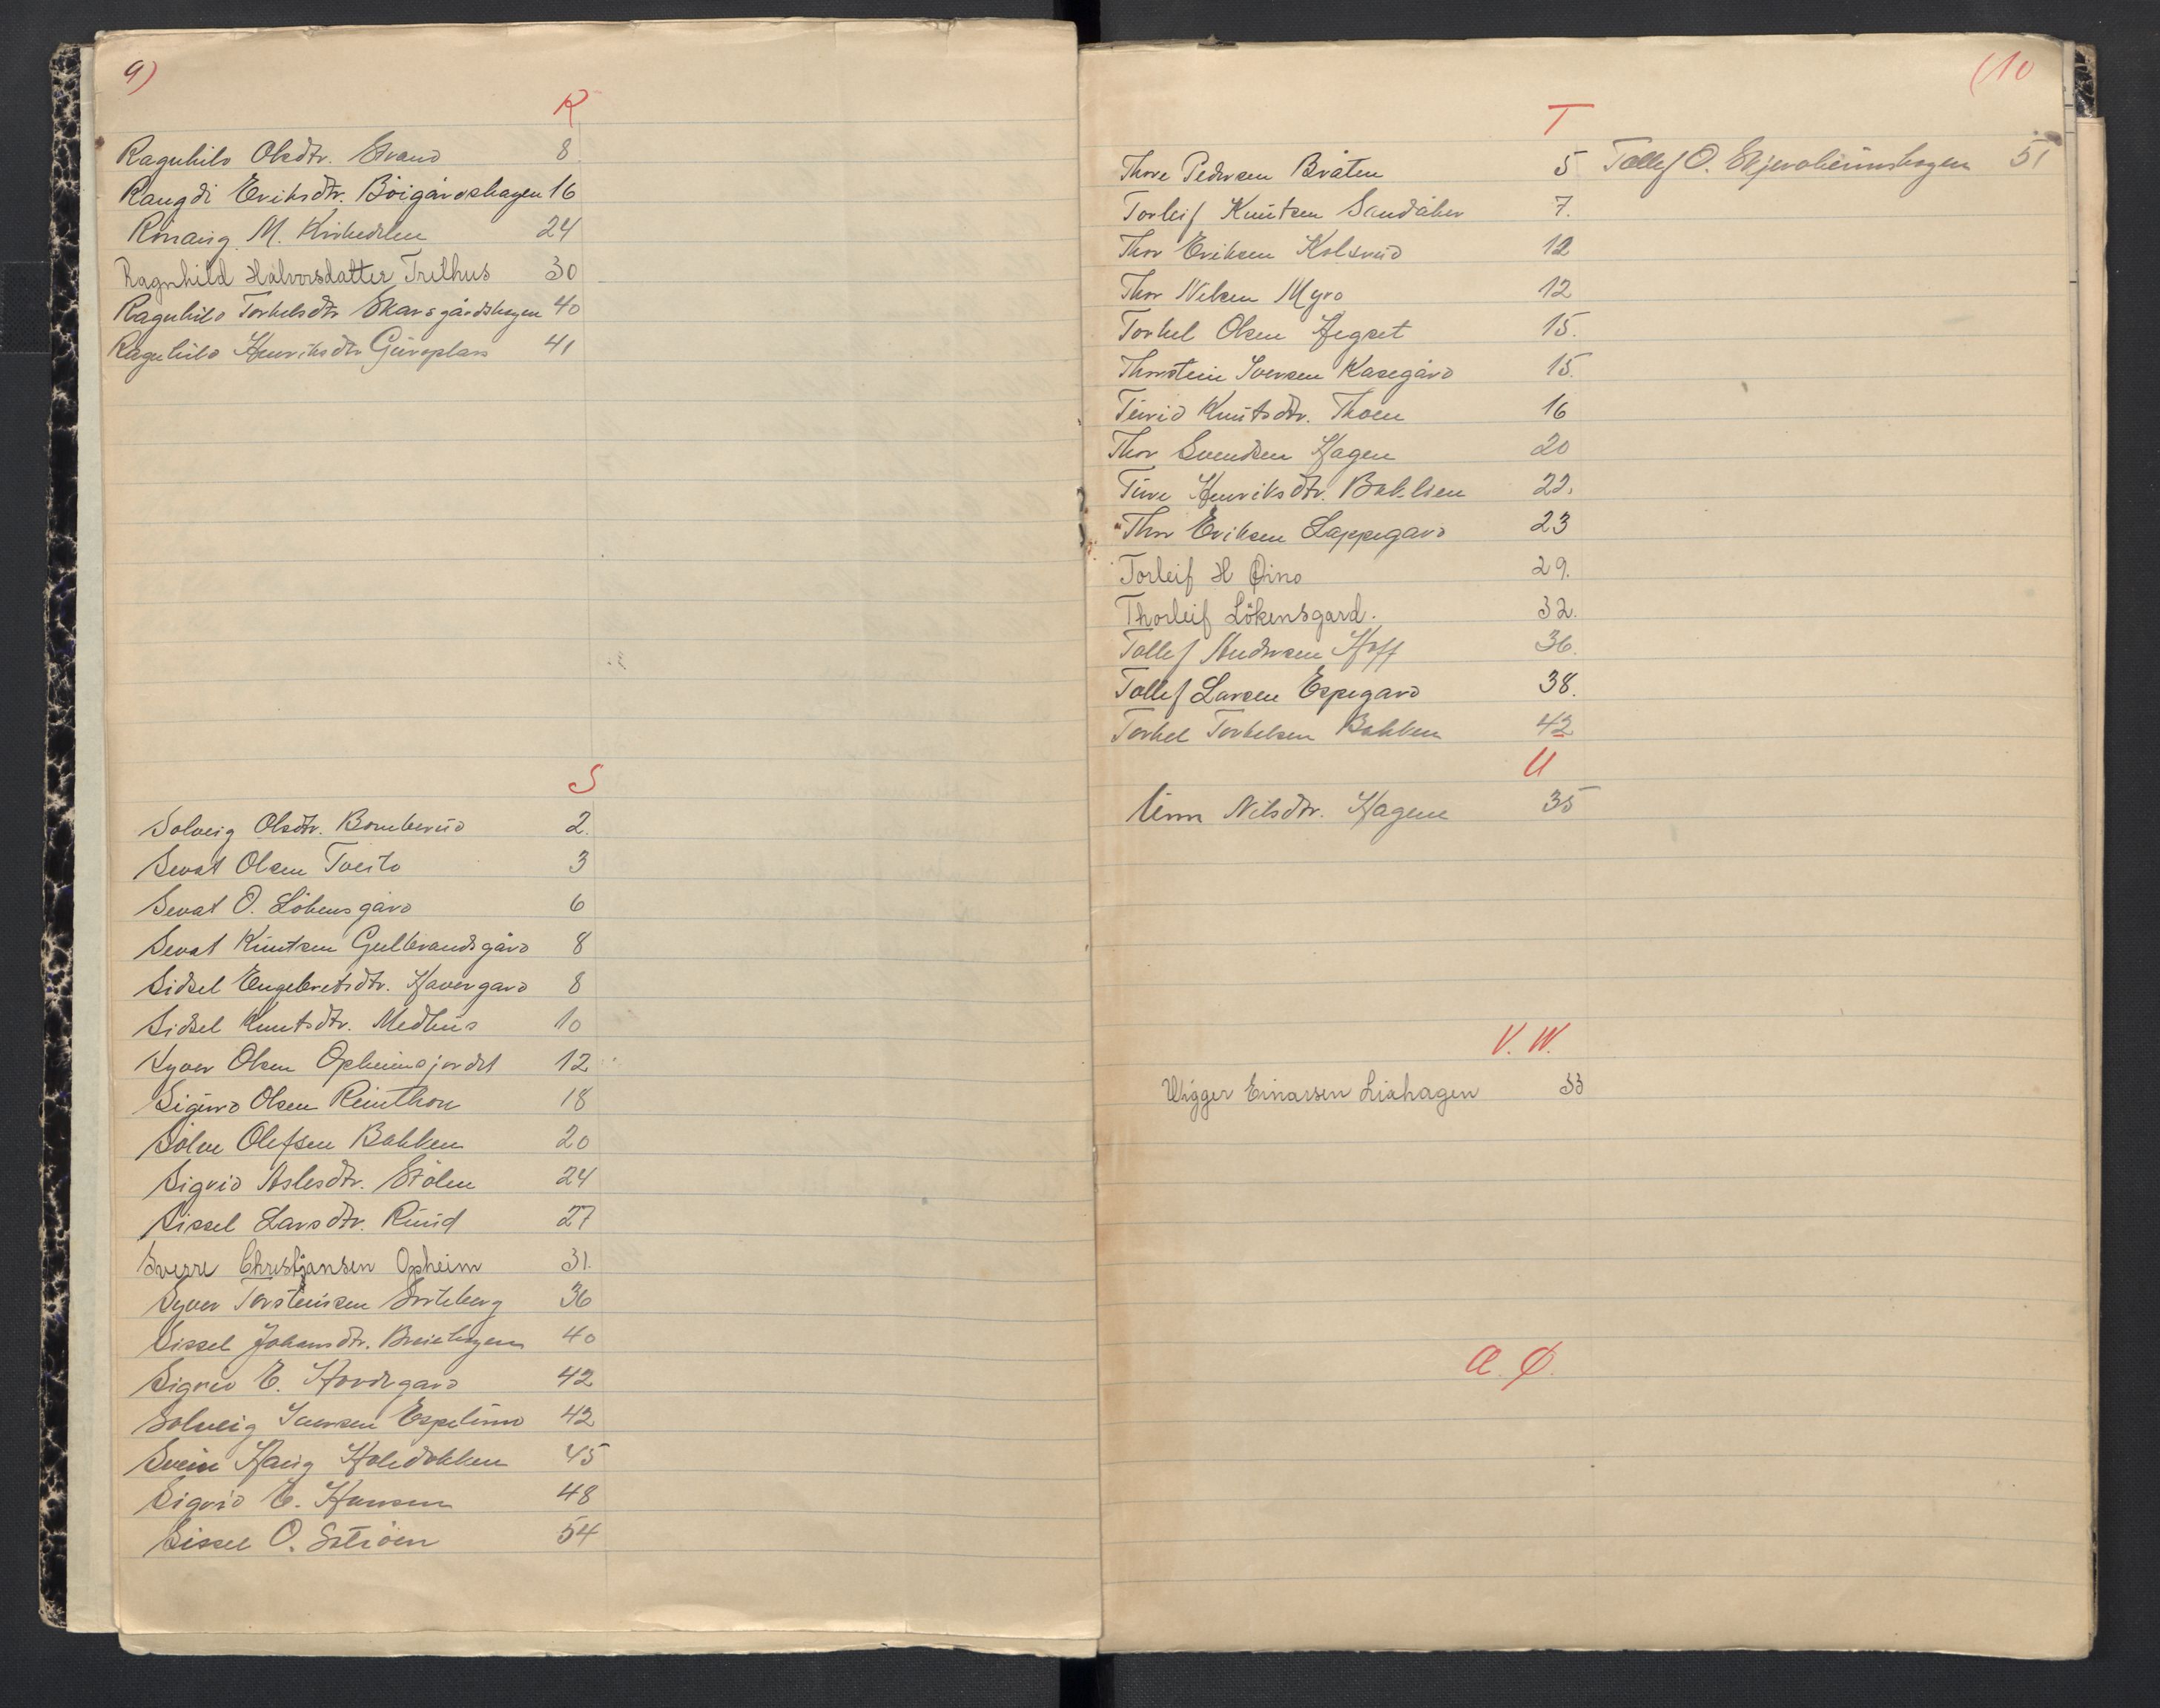 9)
R
Ragnhild Olsdtr. Strand 8
Rangdi Eriksdtr. Böigårdshagen 16
Rönaug M. 24
Ragnhild Halvorsdatter Trithus 30
Ragnhild Torkelsdtr Skarsgårdshagen 40
Ragnhild Henriksdtr Guroplass 41
S
Solveig Olsdtr. Bomberud 2.
Sevat Olsen Tveito 3
Sevat O. Lökensgård 6
Sevat Knutsen Gulbrandsgård 8
Sidsel Engebretsdtr. Havergard 8
Sidsel Knutsdtr. Medhus 10
Syver Olsen Opheimsjordet 12
Sigurd Olsen Reinthon 18
Sölve Olefsen Bakken 20
Sigrid Aslesdtr. Stölen 24
Sissel Larsdtr. Ruud 27
Sverre Christjansen Opheim 31.
Syver Torsteinsen Sorteberg 36
Sissel Johansdtr. Breiehagen 40
Sigrid E. Hovdegard 42
Solveig Iversen Espelund 42
Svein Haug Holedokken 45
Sigrid E. Hansen 48
Sissel O. 54
(10
T
Thore Pedersen Bråten 5 Tollef O. Skjervheimshagen 51
Torleif Knutsen Sandåker 7.
Thor Eriksen Kolsrud 12
Thor Nilsen Myro 12
Torkel Olsen Hegset 15.
Thorstein Iversen Kasegård 15.
Turid Knutsdtr. Thoen 16
Thor Svendsen Hagen 20
Ture Henriksdtr. Baklien 22.
Thor Eriksen Lappegard 23
Torleif H Öino 29.
Thorleif Lökensgard. 32.
Tollef Andersen Hoff 36.
Tollef Larsen Espegard 38.
Torkel Torkelsen Bakken 42
U
Unn Nilsdtr. Hagene 35
V. W.
Wigger Einarsen Liahagen 33
Æ. Ø.